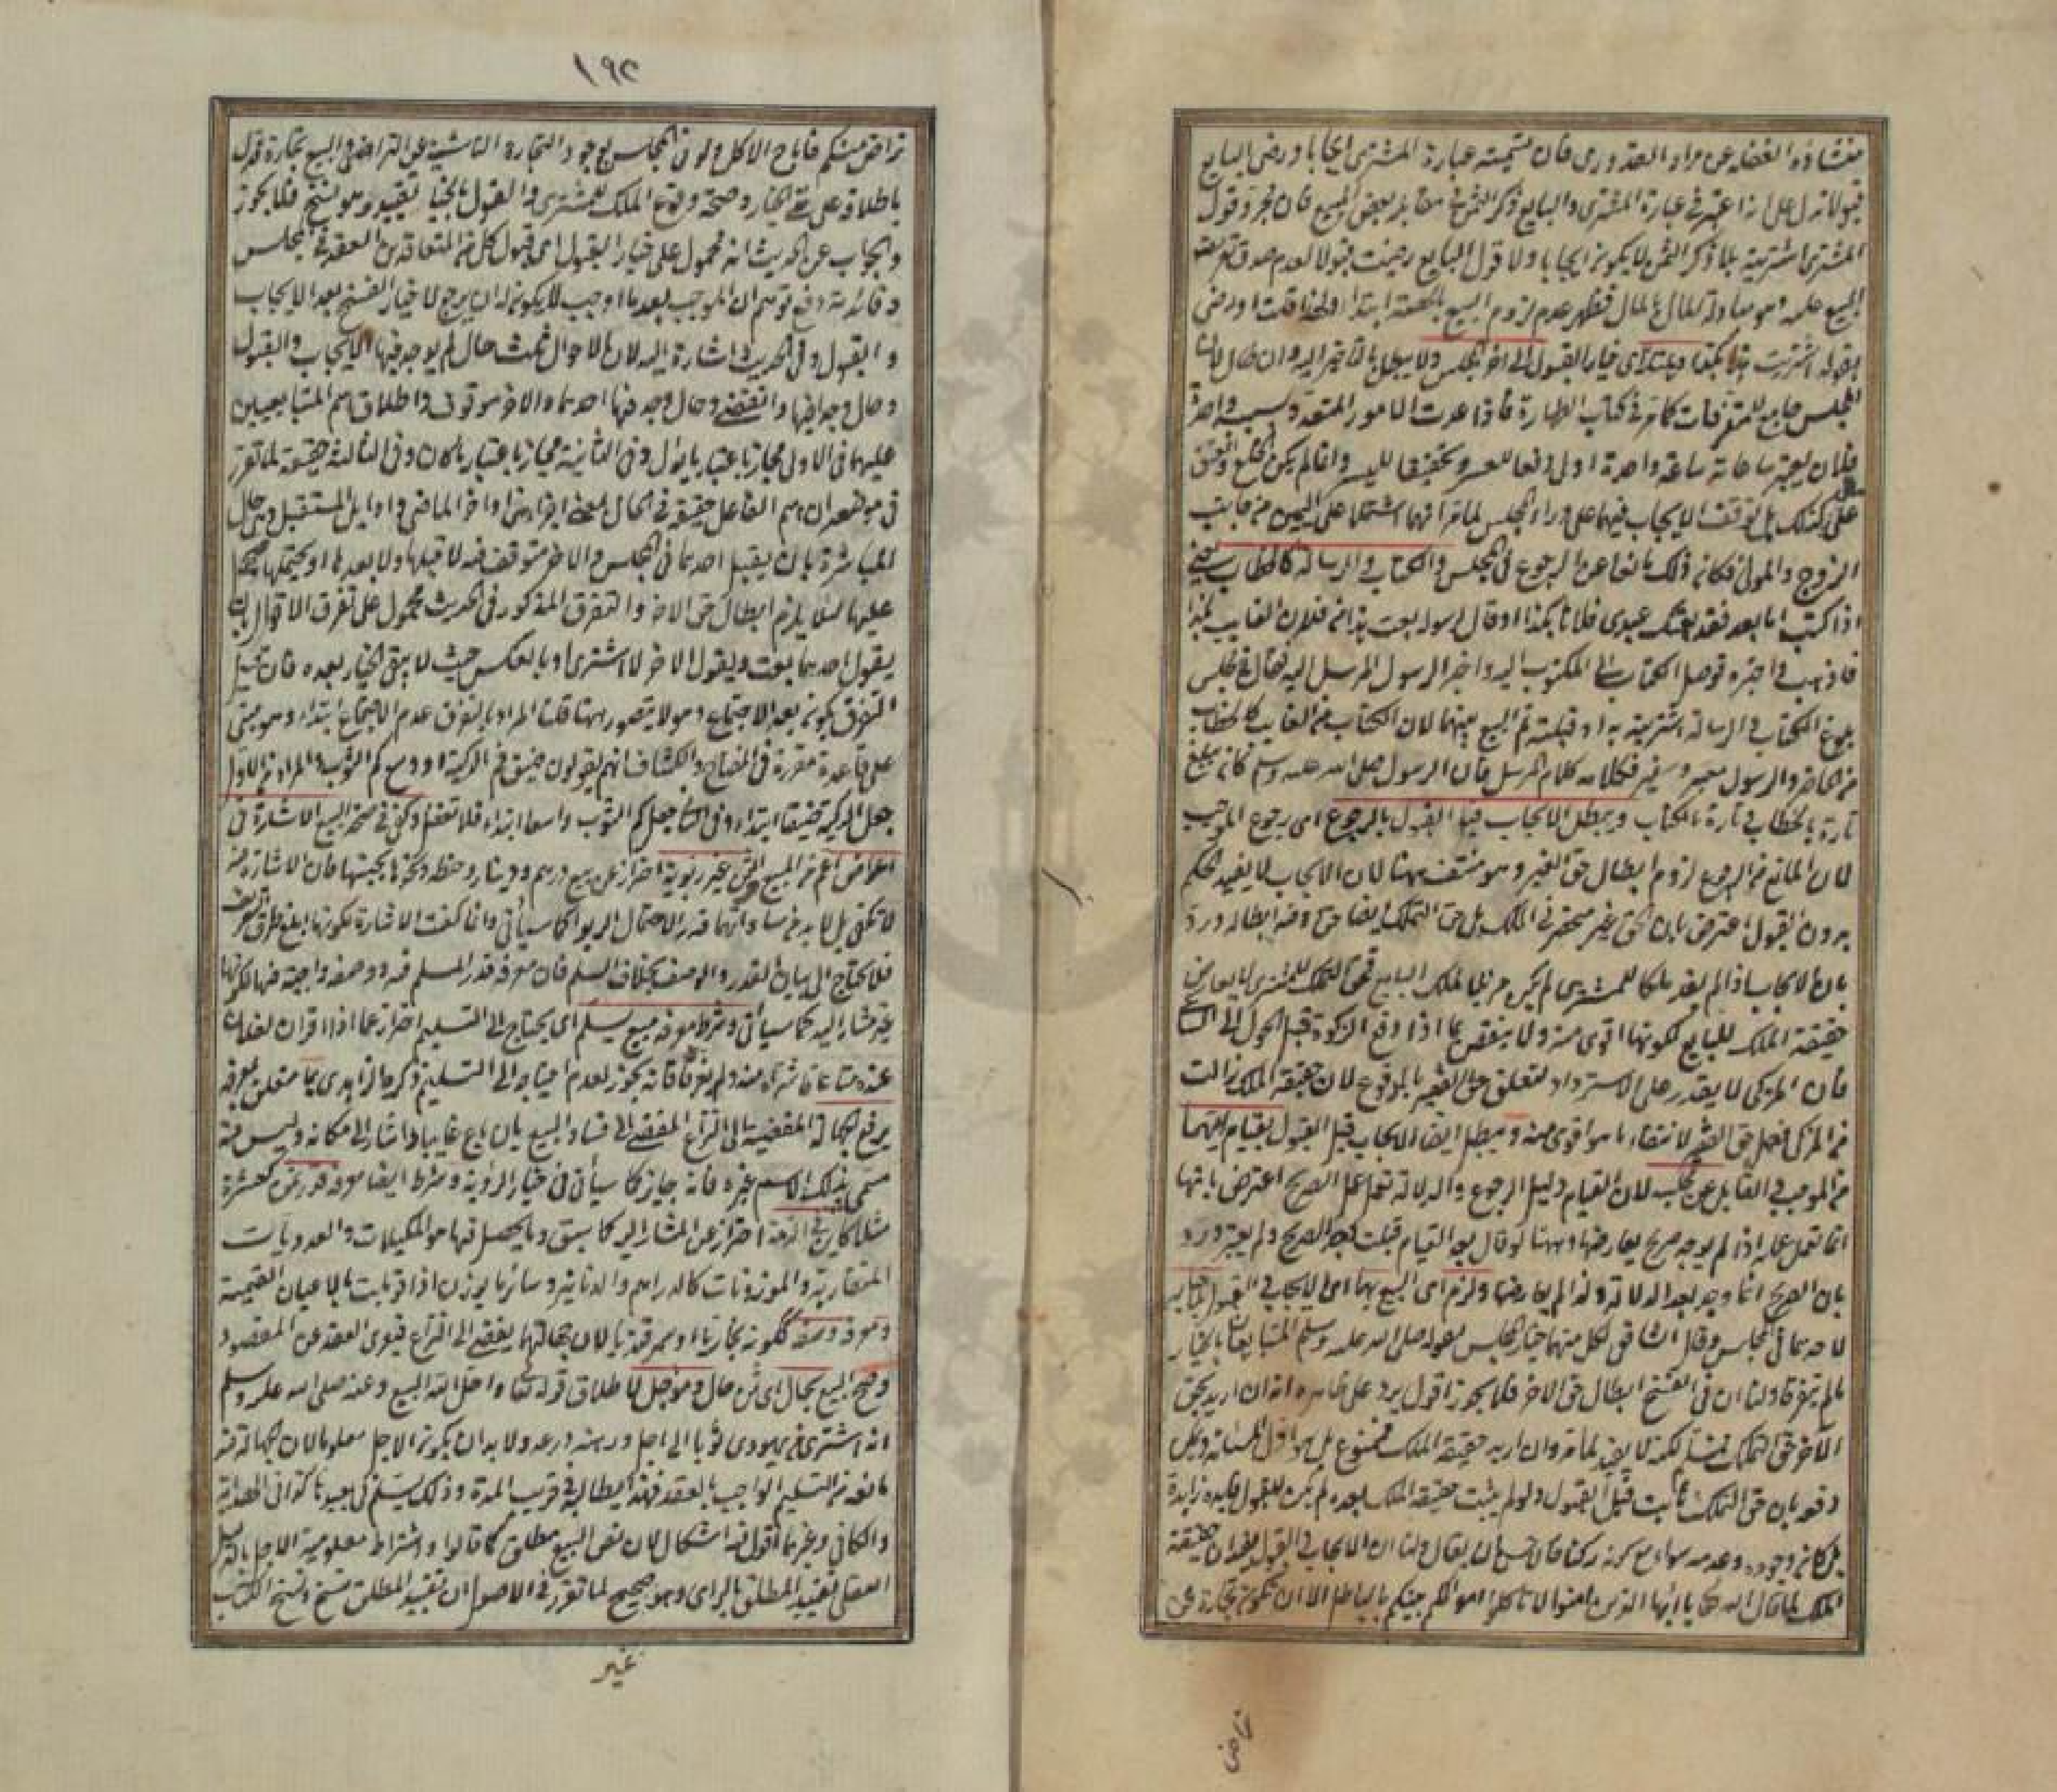 منشاؤه الغفلة عن مراد العقد وروى فان تسمية عبارة المشترى ايجابا ورضى البايع
قبولا تدل على انه اعتبر في عبارة المشترى والبايع ذكر الثمن في مقابلة بعض المبيع فان مجرد قول
المشترى اشتريت بلا ذكر الثمن لا يكون ايجابا ولا قول البايع رضيت قبولا لعدم صدق تعريف
البيع عليه وهو مبادلة المال بالمال فظهر عدم لزوم البيع ابتداء ولهذا قلت او رضى
بقوله اشتريت هذا بكذا ويمتد اى خيار القبول الى اخر المجلس ولا يبطل بالتاخير اليه وان طال لان
المجلس جامع للمتفرقات كما مر في كتاب الطهارة فاذا عدت الامور المتعددة بسبب واحدا
فلان يعتبر ساعاته ساعة واحدة اولى دفعا للعسر وتحقيقا لليسر وانما لم يكن الخلع والعتق
على مال كذلك بل توقف الايجاب فيهما على وراء المجلس لما مر انهما اشتملا على اليمين من جانب
الزوج والمولى فكان ذلك مانعا عن الرجوع في المجلس والكتاب والرسالة كالخطاب يعنى
اذا كتب اما بعد فقد بعتك عبدى فلانا بكذا او قال لرسوله بعت هذا من فلان الغايب بكذا
فاذهب واخبره فوصل الكتاب الى المكتوب اليه واخبر الرسول المرسل اليه فقال في مجلس
بلوغ الكتاب والرسالة اشتريت به او قبلته تم البيع بينهما لان الكتاب من الغايب كالخطاب
من الحاضر والرسول معبر وسفير فكلامه كلام المرسل فان الرسول صلى الله عليه وسلم كان يبلغ
تارة بالخطاب وتارة بالكتاب ويبطل الايجاب قبل القبول بالرجوع اى رجوع الموجب
لان المانع من الرجوع لزوم ابطال حق الغير وهو منتف ههنا لان الايجاب لا يفيد الحكم
بدون القبول اعترض بان الحق غير منحصر في الملك بل حق التملك ايضا حق وفيه ابطاله ورد
بان الايجاب اذا لم يفد ملكا للمشترى لم يكن مزيلا لملك البايع فحق التملك للمشترى لا يعارض
حقيقة الملك للبايع لكونها اقوى منه ولا ينقض بما اذا دفع الزكوة قبل الحول الى الساعى
فان المزكى لا يقدر على الاسترداد لتعلق حق الفقير بالمدفوع لان حقيقة الملك زالت
من المزكى فعمل حق الفقير لانتفاء ما هو اقوى منه ويبطل ايضا الايجاب قبل القبول بقيام ايهما
من الموجب والقابل عن المجلس لان القيام دليل الرجوع والدلالة تعمل عمل الصريح اعترض بانها
انما تعمل عمله اذا لم يوجد صريح يعارضها وههنا لو قال بعد القيام قبلت وجد الصريح ولم يعتبر ورد
بان الصريح انما وجد بعد الدلالة ولذا لم يعارضها ولزم اى البيع بهما اى الايجاب والقبول بلا خيار
لاحدهما في المجلس وقال الشافعى لكل منهما خيار المجلس لقوله صلى الله عليه وسلم المتبايعان بالخيار
ما لم يتفرقا ولنا ان في الفسخ ابطال حق الاخر فلا يجوز اقول يرد على ظاهره انه ان اريد بحق
الاخر حق التملك لكنه لا يفيد لما مر وان اريد حقيقة الملك فممنوع بل هو اول المسئلة ويمكن
دفعه بان حق التملك ثابت قبل القبول ولو لم يثبت حقيقة الملك بعده لم يكن للقبول فايدة زايدة
بل كان وجوده وعدمه سواء مع كونه ركنا فالاحسن ان يقال ولنا ان الايجاب والقبول يفيدان حقيقة
الملك لما قال الله تعالى يا ايها الذين امنوا لا تاكلوا اموالكم بينكم بالباطل الا ان تكون تجارة عن
تراض
١٩٢
تراض منكم فاباح الاكل ولو في المجلس لوجود التجارة الناشية عن التراضى والبيع تجارة فدل
باطلاقه على نفى الخيار وصحة وقوع الملك للمشترى والقول بالخيار تقييد وهو نسخ فلا يجوز
والجواب عن الحديث انه محمول على خيار القبول اى قبول كل من المتعاقدين العقد في المجلس
وفائدته دفع توهم ان الموجب بعد ما اوجب لا يكون له ان يرجع لا خيار الفسخ بعد الايجاب
والقبول وفى الحديث اشارة اليه لان الاحوال ثلث حال لم يوجد فيها الايجاب والقبول
وحال وجد فيها وانقضى وحال وجد فيها احدهما والاخر موقوف واطلاق اسم المتبايعين
عليهما في الاولى مجاز باعتبار ما يؤل وفى الثانية مجاز باعتبار ما كان وفى الثالثة حقيقة لما تقرر
في موضعه ان اسم الفاعل حقيقة في الحال بمعنى اجزاء من اواخر الماضى واوايل المستقبل وهى حال
المباشرة بان يقبل احدهما في المجلس والاخر متوقف فيه لا قبلها ولا بعدها او يحتملها فيحمل
عليها لئلا يلزم ابطال حق الاخر والتفرق المذكور في الحديث محمول على تفرق الاقوال بان
يقول احدهما بعت ويقول الاخر لا اشترى او بالعكس حيث لا يبقى الخيار بعده فان قيل
التفرق يكون بعد الاجتماع وهو لا يتصور ههنا قلنا المراد بالتفرق عدم الاجتماع ابتداء وهو مبنى
على قاعدة مقررة في المفتاح والكشاف انهم يقولون ضيق فم الركية ووسع كم الثوب والمراد من الاول
جعل الركية ضيقا ابتداء وفى الثانى جعل كم الثوب واسعا ابتداء فلا تغفل وكفى في صحة البيع الاشارة في
اعواض اعم من المبيع والثمن غير ربوية احتراز عن بيع درهم ودينار وحنطة ونحوها بجنسها فان الاشارة فيه
لا تكفى بل لا بد من مساواتهما قدرا لاحتمال الربوا كما سيأتى وانما كفت الاشارة لكونها ابلغ طرق التعريف
فلا يحتاج الى بيان القدر والوصف بخلاف السلم فان معرفة قدر المسلم فيه ووصفه واجبة فيها لكونها
غير مشار اليه كما سيأتى وشرط معرفة مبيع يسلم اى يحتاج الى التسليم احتراز عما اذا اقر ان لفلان
عنده متاعا فاشتراه منه ولم يعرفا فانه يجوز لعدم احتياجه الى التسليم ذكره الزاهدى بما متعلق بمعرفة
يرفع الجهالة المفضية الى النزاع المفضى الى فساد البيع بان باع غايبا واشار الى مكانه وليس فيه
مسمى بذلك الاسم غيره فانه جايز كما سيأتى في خيار الرؤية وشرط ايضا معرفة قدر ثمن كعشرة
مثلا كاين في الذمة احتراز عن المشار اليه كما سبق وما يحصل فيها هو المكيلات والعدديات
المتقاربة والموزونات كالدراهم والدنانير وسائر ما يوزن اذا قوبلت بالاعيان القيمية
ومعرفة وصفه ككونه بخاريا او سمرقنديا لان جهالتهما يفضى الى النزاع فيعرى العقد عن المقصود
وصح البيع بحال اى ثمن حال ومؤجل لاطلاق قوله تعالى واحل الله البيع وعنه صلى الله عليه وسلم
انه اشترى من يهودى ثوبا الى اجل ورهنه درعه ولا بد ان يكون الاجل معلوما لان جهالته فيه
مانعة من التسليم الواجب بالعقد فهذا يطالبه في قريب المدة وذلك يسلم في بعيدها كذا في الهداية
والكافى وغيرهما اقول فيه اشكال لان نص البيع مطلق كما قالوا واشتراط معلومية الاجل بالدليل
العقلى تقييد المطلق بالراى وهو صحيح لما تقرر في الاصول ان تقييد المطلق نسخ ونسخ الكتاب
غير